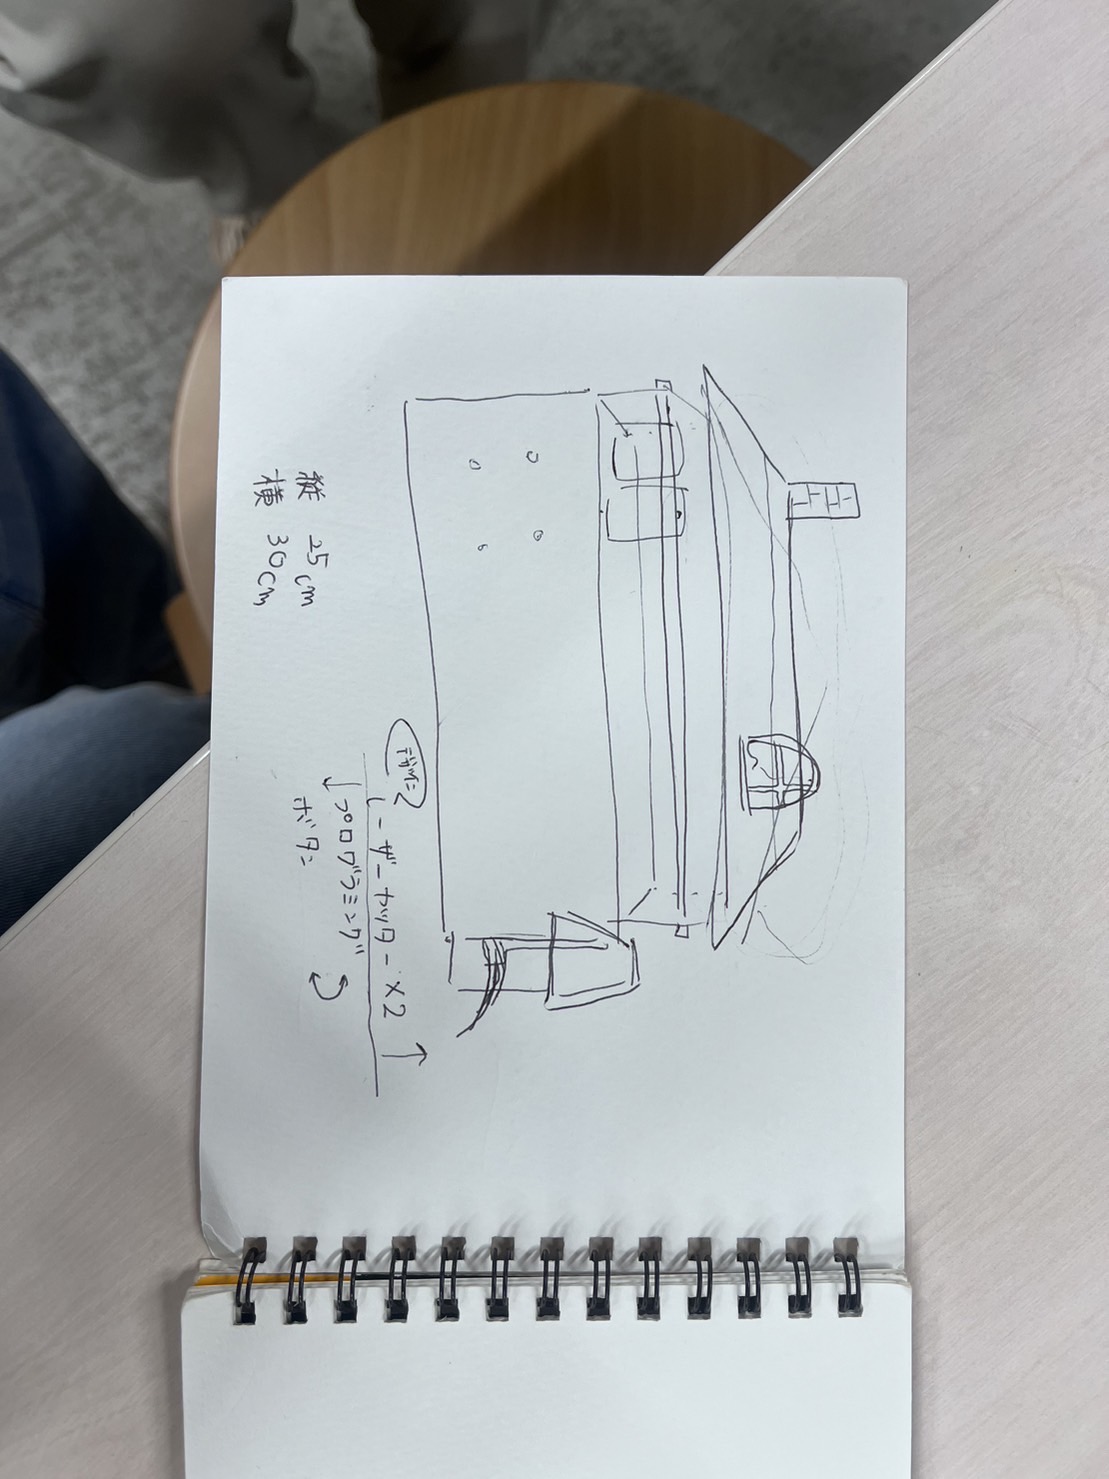 縦 25cm
横 30cm
デザイン
レーザーカッター ×2 ↑
↓プログラミング
ボタン